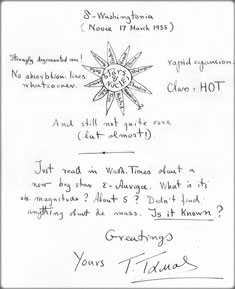 S-Washingtonia
(Novae 17 March 1935)
Strongly degenerated one!
rapid expansion.
No absorbtion-lines
whatsoever.
Class: HOT
And still not quite sure
(but almost!)
Just read in Wash. Times about a
new big star ε-Aurigae. What is its
abs. magnitude? About 5? Didn't find
anything about the mass. Is it known?
Greatings
Yours